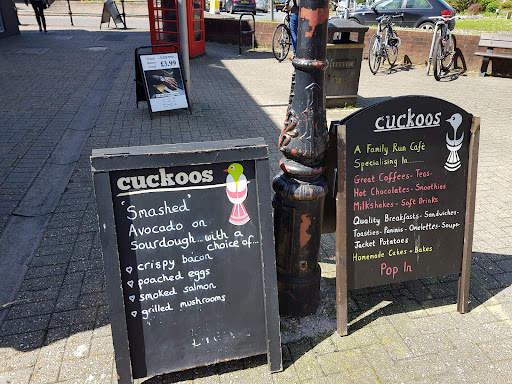 £3.99
cuckoos
'Smashed'
Avocado on
Sourdough... with a
choice of...
crispy bacon
poached eggs
smoked salmon
grilled mushrooms
cuckoos
A Family Run Café
Specialising In........
Great Coffees - Teas -
Hot Chocolates - Smoothies
Milkshakes - Soft Drinks
Quality Breakfasts - Sandwiches -
Toasties - Paninis - Omelettes - Soups -
Jacket Potatoes
Homemade Cakes + Bakes
Pop In